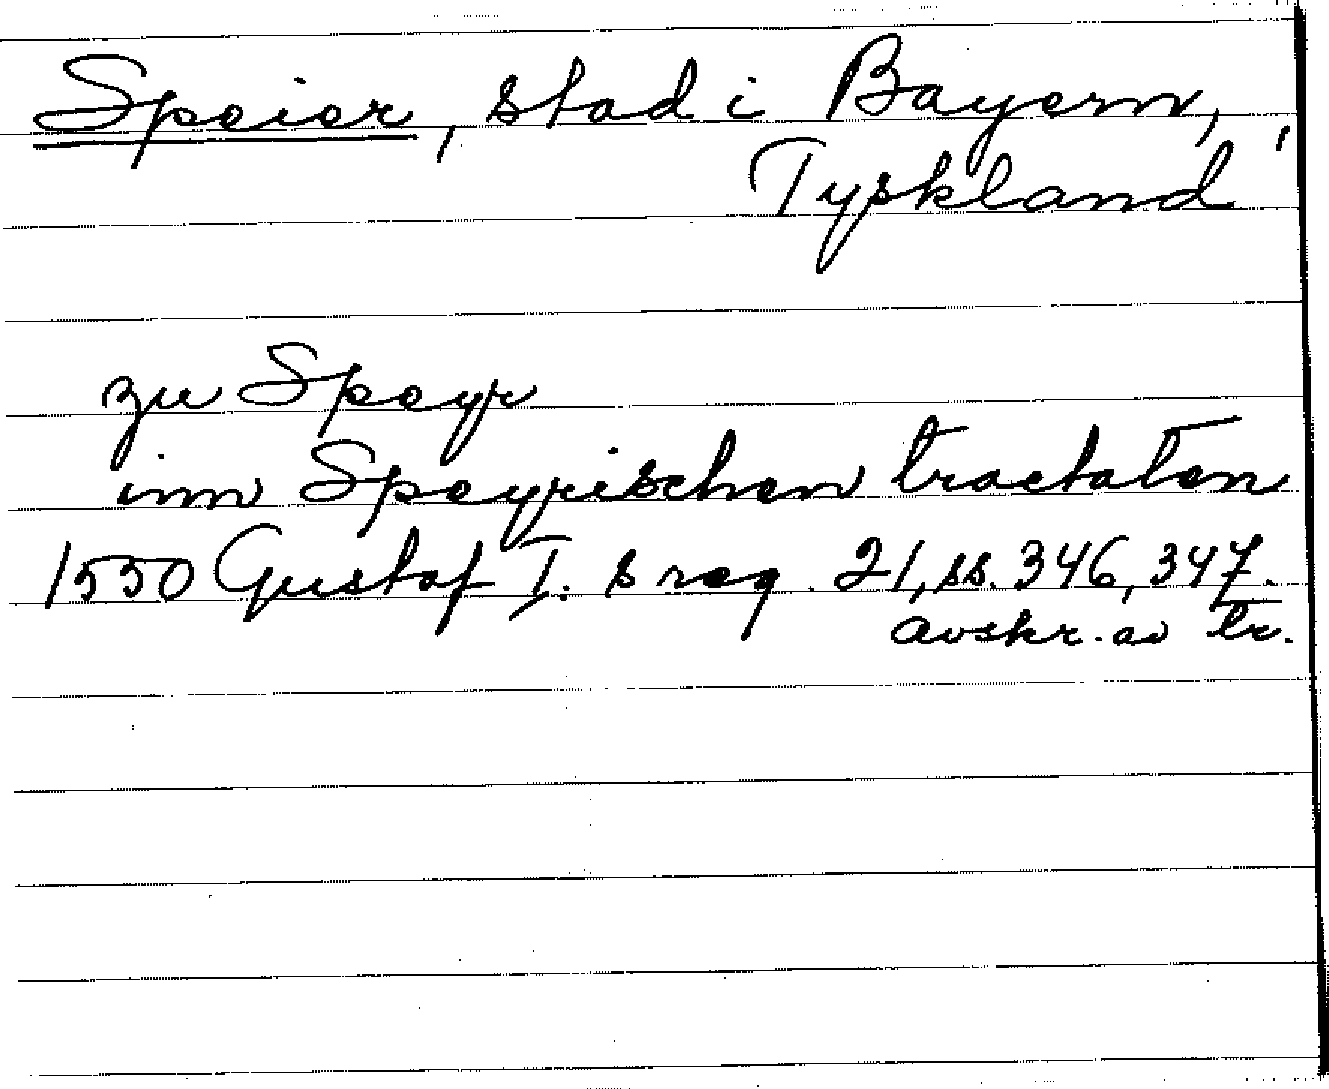 Speier, stad i Bayern,
Tyskland
zu Speyr
inn Speyrischen tractaten
1550 Gustaf I:s reg. 21, ss. 346, 347.
avskr. av tr.